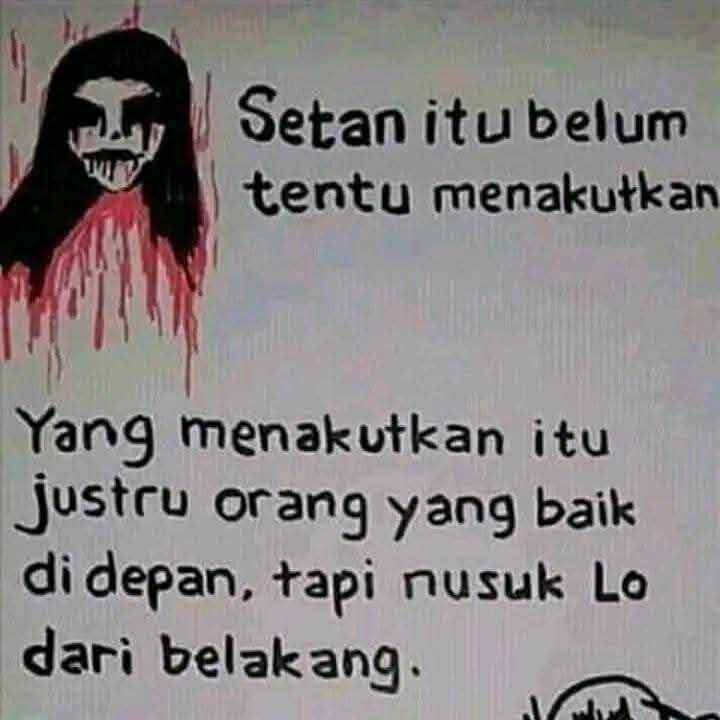 Setan itu belum
tentu menakutkan
Yang menakutkan itu
justru orang yang baik
di depan, tapi nusuk Lo
dari belakang.